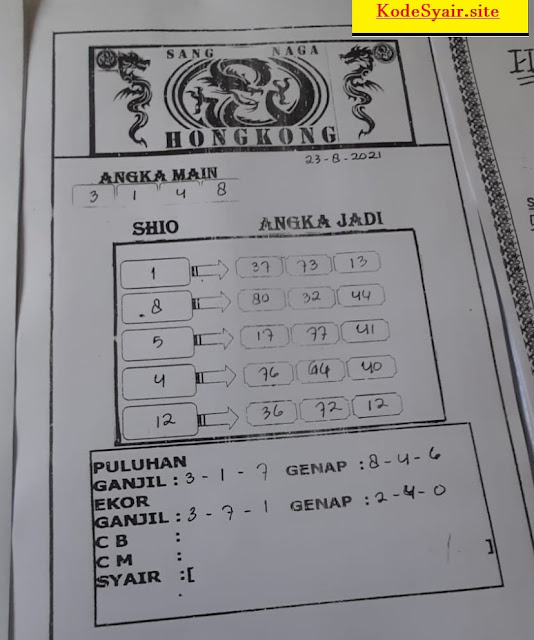 KodeSyair.site
SANG NAGA
HONGKONG
23-8-2021
ANGKA MAIN
3 1 4 8
SHIO ANGKA JADI
1 37 73 13
8 80 32 44
5 17 77 41
4 76 44 40
12 36 72 12
PULUHAN
GANJIL : 3 - 1 - 7 GENAP : 8 - 4 - 6
EKOR
GANJIL : 3 - 7 - 1 GENAP : 2 - 4 - 0
C B :
C M :
SYAIR :[ ]